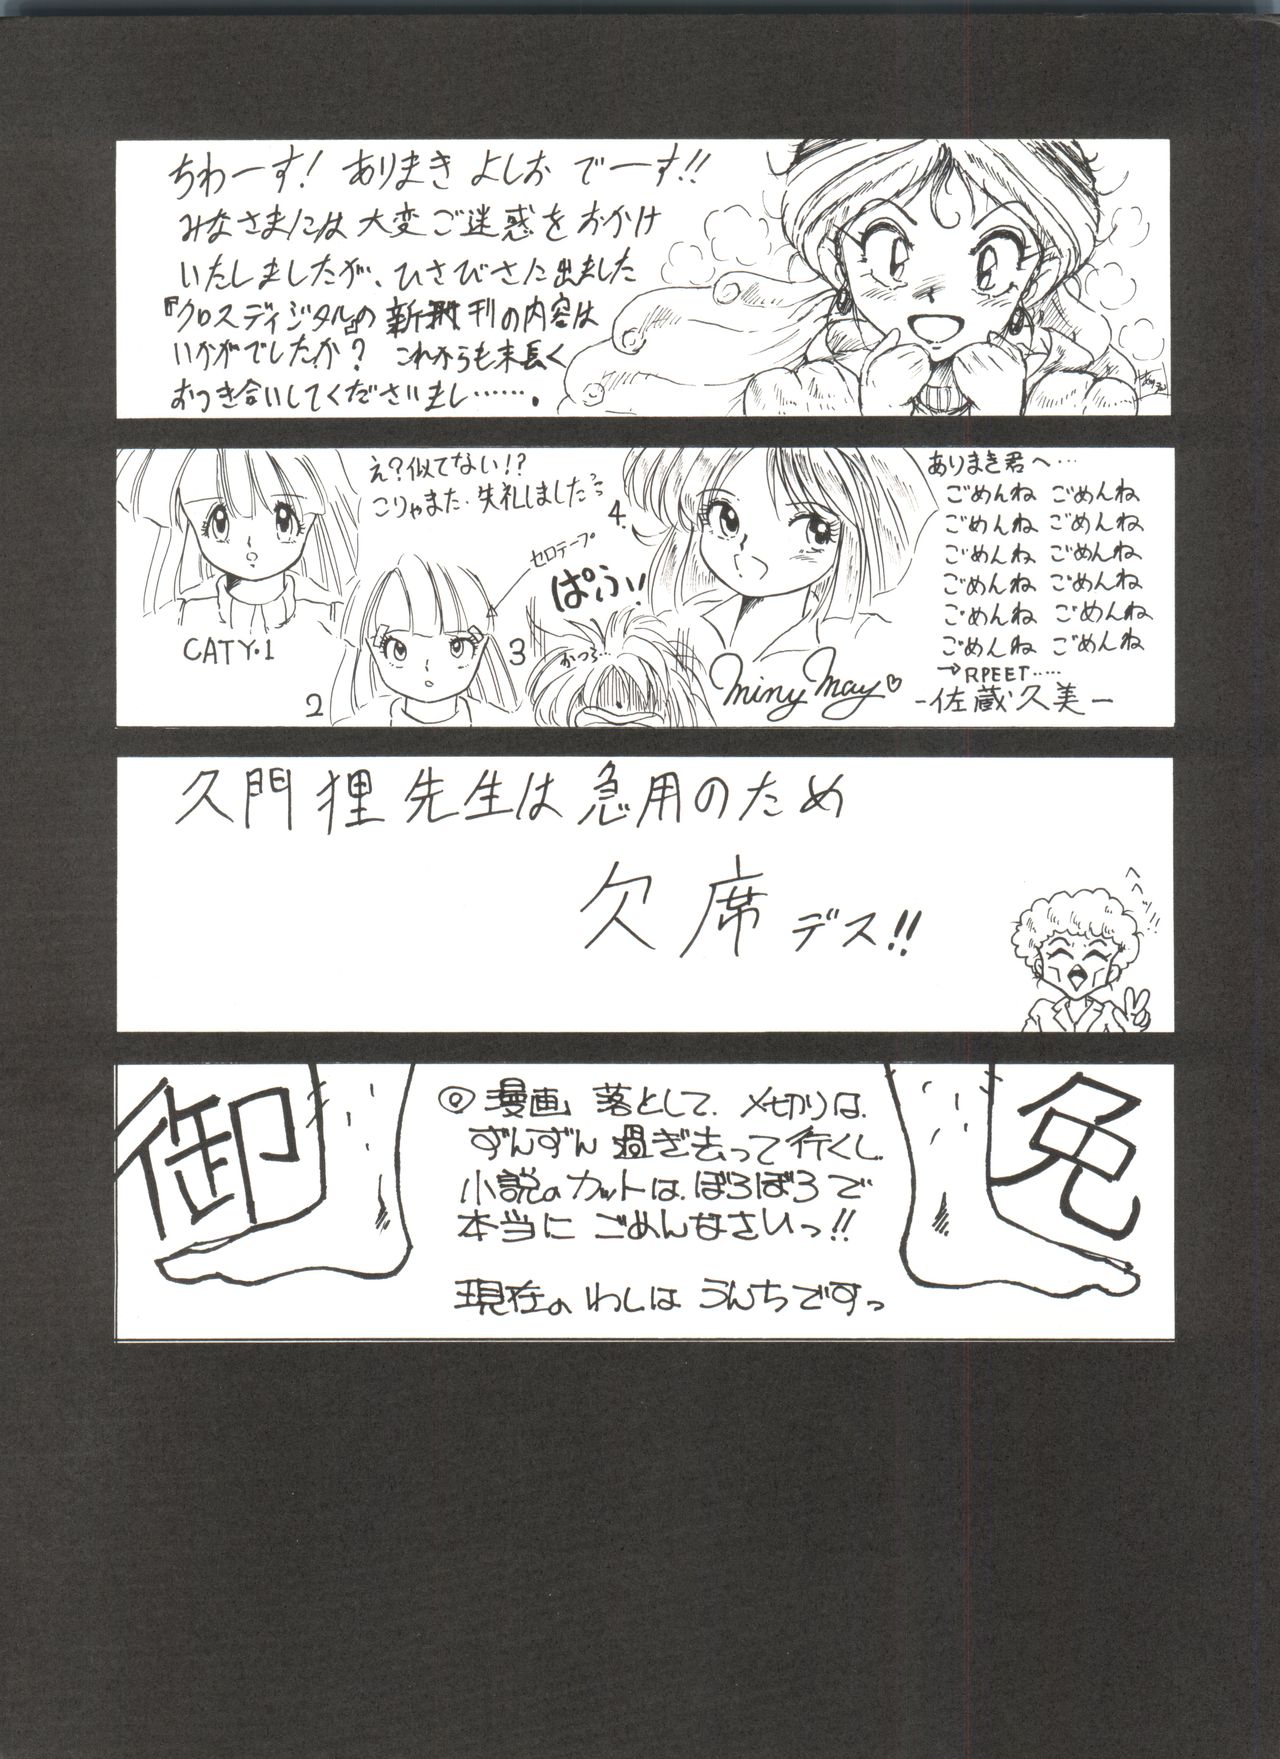 ちわーす! ありまき よしお でーす!!
みなさまには 大変 ご迷惑を おかけ
いたしましたが、ひさびさに 出ました
『クロスディジタル』の 新刊の内容は
いかがでしたか? これからも末長く
おつき合いしてくださいまし……。
え?似てない!?
こりゃまた、失礼しました
CATY・1
2
セロテープ
3
ぱふぅ!
かつら…
4
miny may♡
ありまき君へ…
ごめんね ごめんね
ごめんね ごめんね
ごめんね ごめんね
ごめんね ごめんね
ごめんね ごめんね
ごめんね ごめんね
→RPEET……
-佐蔵久美-
久門狸先生は 急用のため
欠席デス!!
へへへッ!!
御
◎ 漫画 落として、〆切りは、
ずんずん 過ぎ去って行くし
小説のカットは、ぼろぼろで
本当に ごめんなさいっ!!
現在の わしは うんちですっ
免